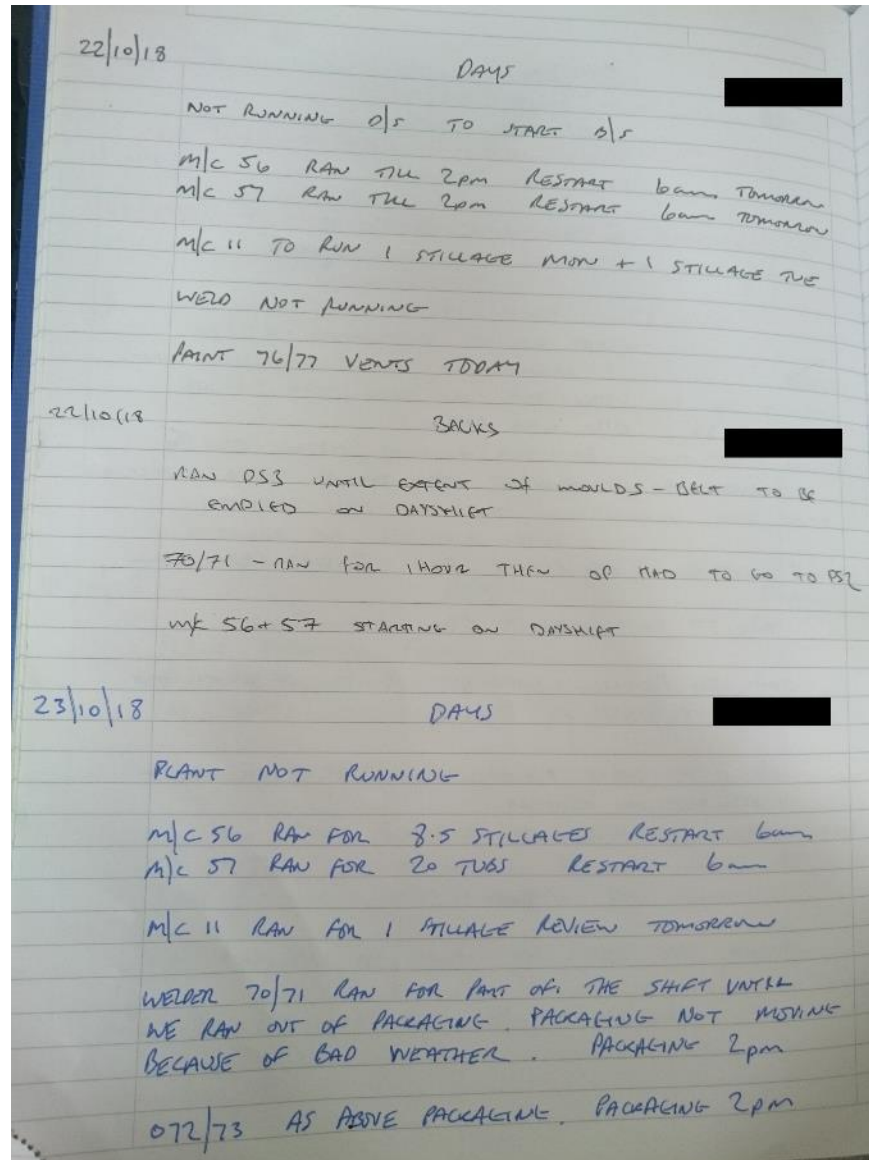 22/10/18
DAYS
NOT RUNNING D/S TO START B/S
M/C 56 RAN TILL 2pm RESTART 6am TOMORROW
M/C 57 RAN TILL 2pm RESTART 6am TOMORROW
M/C 11 TO RUN 1 STILLAGE MON + 1 STILLAGE TUE
WELD NOT RUNNING
PAINT 76/77 VENTS TODAY
22/10/18
BACKS
RAN DS3 UNTIL EXTENT of MOULDS - BELT TO BE
EMPIED ON DAYSHIFT
70/71 - RAN for 1 HOUR THEN OP HAD TO GO TO
M/C 56 + 57 STARTING ON DAYSHIFT
23/10/18
DAYS
PLANT NOT RUNNING
M/C 56 RAN FOR 8.5 STILLAGES RESTART 6am
M/C 57 RAN FOR 20 TUBS RESTART 6am
M/C 11 RAN FOR 1 STILLAGE REVIEW TOMORROW
WELDER 70/71 RAN FOR PART OF THE SHIFT UNTILL
WE RAN OUT OF PACKAGING. PACKAGING NOT MOVING
BECAUSE OF BAD WEATHER. PACKAGING 2pm
072/73 AS ABOVE PACKAGING. PACKAGING 2pm